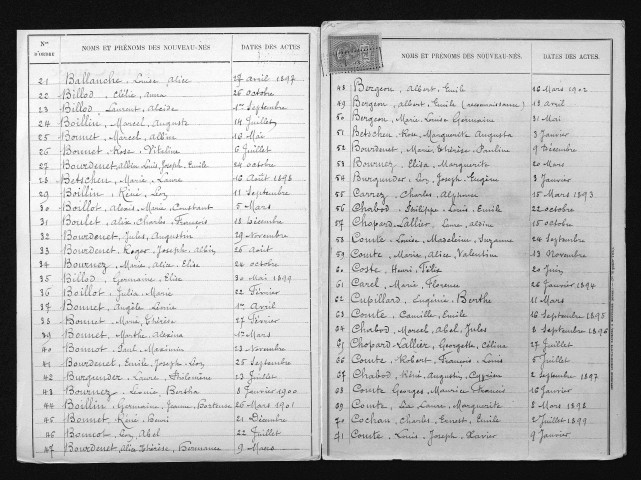 Nos D'ORDRE NOMS ET PRÉNOMS DES NOUVEAU-NÉS DATES DES ACTES
21 Ballanche, Louise Alice 27 avril 1897
22 Billod, Clélie, Anna 26 octobre
23 Billod, Laurent, 1er Septembre
24 Boillin, Marcel, Auguste 14 Juillet
25 Bonnet, Marcel, Albin 16 Mai
26 Bonnet, Rose, 6 Juillet
27 Bourdenet, Albin Louis, Joseph, Emile 24 octobre
28 Betschen, Marie, Laure 16 Août 1898
29 Boillin, Réné, Léon 11 Septembre
30 Boillot, Alexis, Marie, Constant 5 Mars
31 Boulet, Alix, Charles, François 18 Décembre
32 Bourdenet, Jules, Augustin 29 Novembre
33 Bourdenet, Roger, Joseph, Albin 26 Août
34 Bournez, Marie, Alix, Elise 24 octobre
35 Billod, Germaine, Elise 30 Mai 1899
36 Boillot, Julia, Marie 22 Février
37 Bonnet, Angèle, 1er Avril
38 Bonnet, Marie, Thérèse 27 Février
39 Bonnet, Marthe, 1er Mars
40 Bonnot, Paul, Maximin 23 Novembre
41 Bourdenet, Emile, Joseph, Léon 25 Septembre
42 Burgunder, Laure, Philomène 13 Juillet
43 Bournez, Léonie, Berthe 8 Janvier 1900
44 Boillin, Germaine, Jeanne, Hortense 26 Mars 1901
45 Bonnet, Réné, Henri 21 Décembre
46 Bonnot, Léon, Abel 22 Juillet
47 Bourdenet, Alice, Thérèse, Germaine 9 Mars
NOMS ET PRÉNOMS DES NOUVEAU-NÉS. DATES DES ACTES.
48 Bergeon, Albert, Emile 16 Mars 1902
49 Bergeon, Albert, Emile (reconnaissance) 18 avril
50 Bergeon, Marie, Louise, Germaine 31 Mai
51 Betschen, Rose, Marguerite, Augusta 3 Janvier
52 Bourdenet, Marie, Thérèse, Pauline 9 Décembre
53 Bournez, Elisa, Marguerite 20 Mars
54 Burgunder, Léon, Joseph, Eugène 3 Janvier
55 Carrez, Charles, Alphonse 15 Mars 1893
56 Chabod, Philippe, Louis, Emile 22 octobre
57 Chopard-Lallier, 15 octobre
58 Comte, Louise, Madeleine, Suzanne 24 Septembre
59 Comte, Marie, Alice, Valentine 13 Novembre
60 Coste, Henri, Félix 20 Juin
61 Carel, Marie, Florence 26 Janvier 1894
62 Cupillard, Eugénie, Berthe 11 Mars
63 Comte, Camille, Emile 16 Septembre 1895
64 Chabod, Marcel, Abel, Jules 8 Septembre 1896
65 Chopard-Lallier, Georgette, Céline 27 Juillet
66 Comte, Robert, François, Louis 5 Juillet
67 Chabod, Réné, Augustin, Cyprien 2 Septembre 1897
68 Comte Georges, Maurice, Francis 16 Janvier
69 Comte, Laure, Marguerite 8 Mars 1898
70 Cochon, Charles, Ernest, Emile 2 Juillet 1899
71 Comte, Louis, Joseph, Xavier 9 Janvier